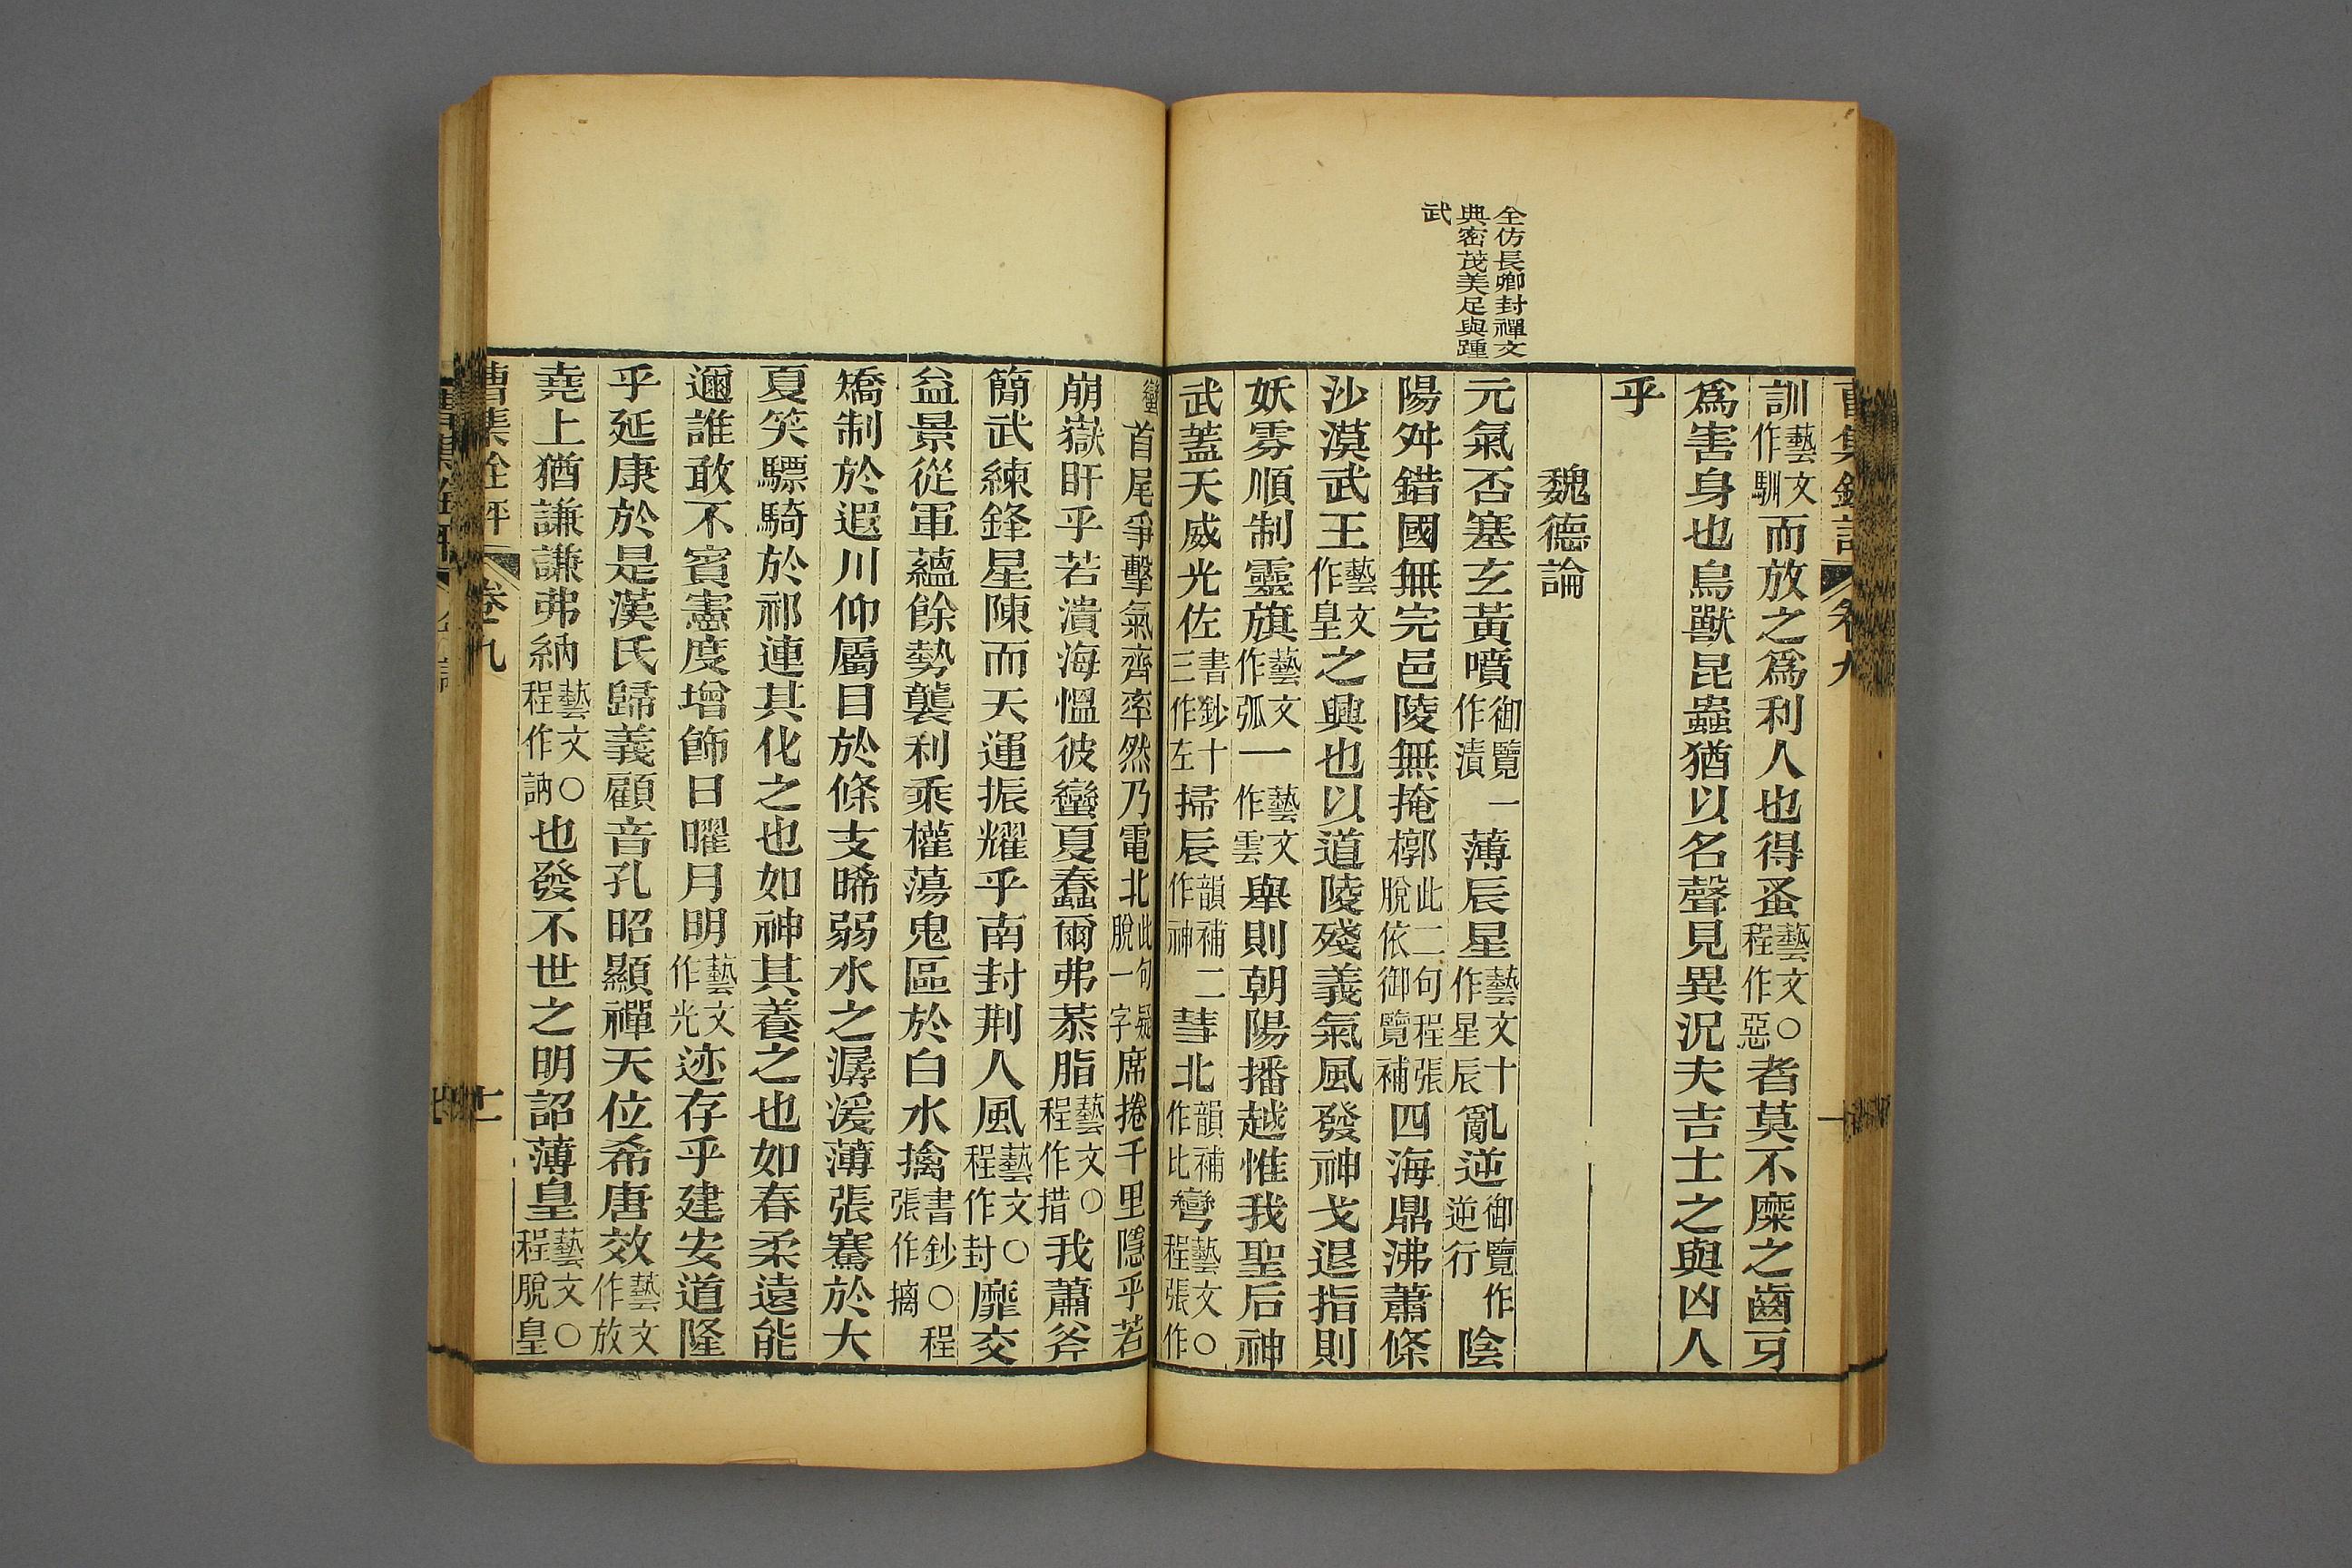 全仿長卿封禪文
典密茂美足與踵
武
訓藝文作馴而放之爲利人也得蚤藝文○程作惡者莫不糜之齒牙
爲害身也鳥獸昆蟲猶以名聲見異況夫吉士之與凶人
乎
魏德論
元氣否塞玄黃噴御覽作漬一薄辰星藝文十作星辰亂逆御覽作逆行陰
陽舛錯國無完邑陵無掩槨此二句程張脫依御覽補四海鼎沸蕭條
沙漠武王藝文作皇之興也以道陵殘義氣風發神戈退指則
妖雰順制靈旗藝文作弧一藝文作雲舉則朝陽播越惟我聖后神
武蓋天威光佐書鈔十三作左掃辰韻補作神二彗北韻補作比彎藝文○程張作
蠻首尾爭擊氣齊率然乃電北此句疑脫一字席捲千里隱乎若
崩嶽旰乎若潰海慍彼蠻夏蠢爾弗恭脂藝文○程作措我蕭斧
簡武練鋒星陳而天運振耀乎南封荆人風藝文○程作封靡交
益景從軍蘊餘勢襲利乘權蕩鬼區於白水擒書鈔○程張作摛
矯制於遐川仰屬目於條支晞弱水之潺湲薄張騫於大
夏笑驃騎於祁連其化之也如神其養之也如春柔遠能
邇誰敢不賓憲度增飾日曜月明藝文作光迹存乎建安道隆
乎延康於是漢氏歸義顧音孔昭顯禪天位希唐效藝文作放
堯上猶謙謙弗納藝文○程作訥也發不世之明詔薄皇藝文○程脫皇
曹集銓評
卷九